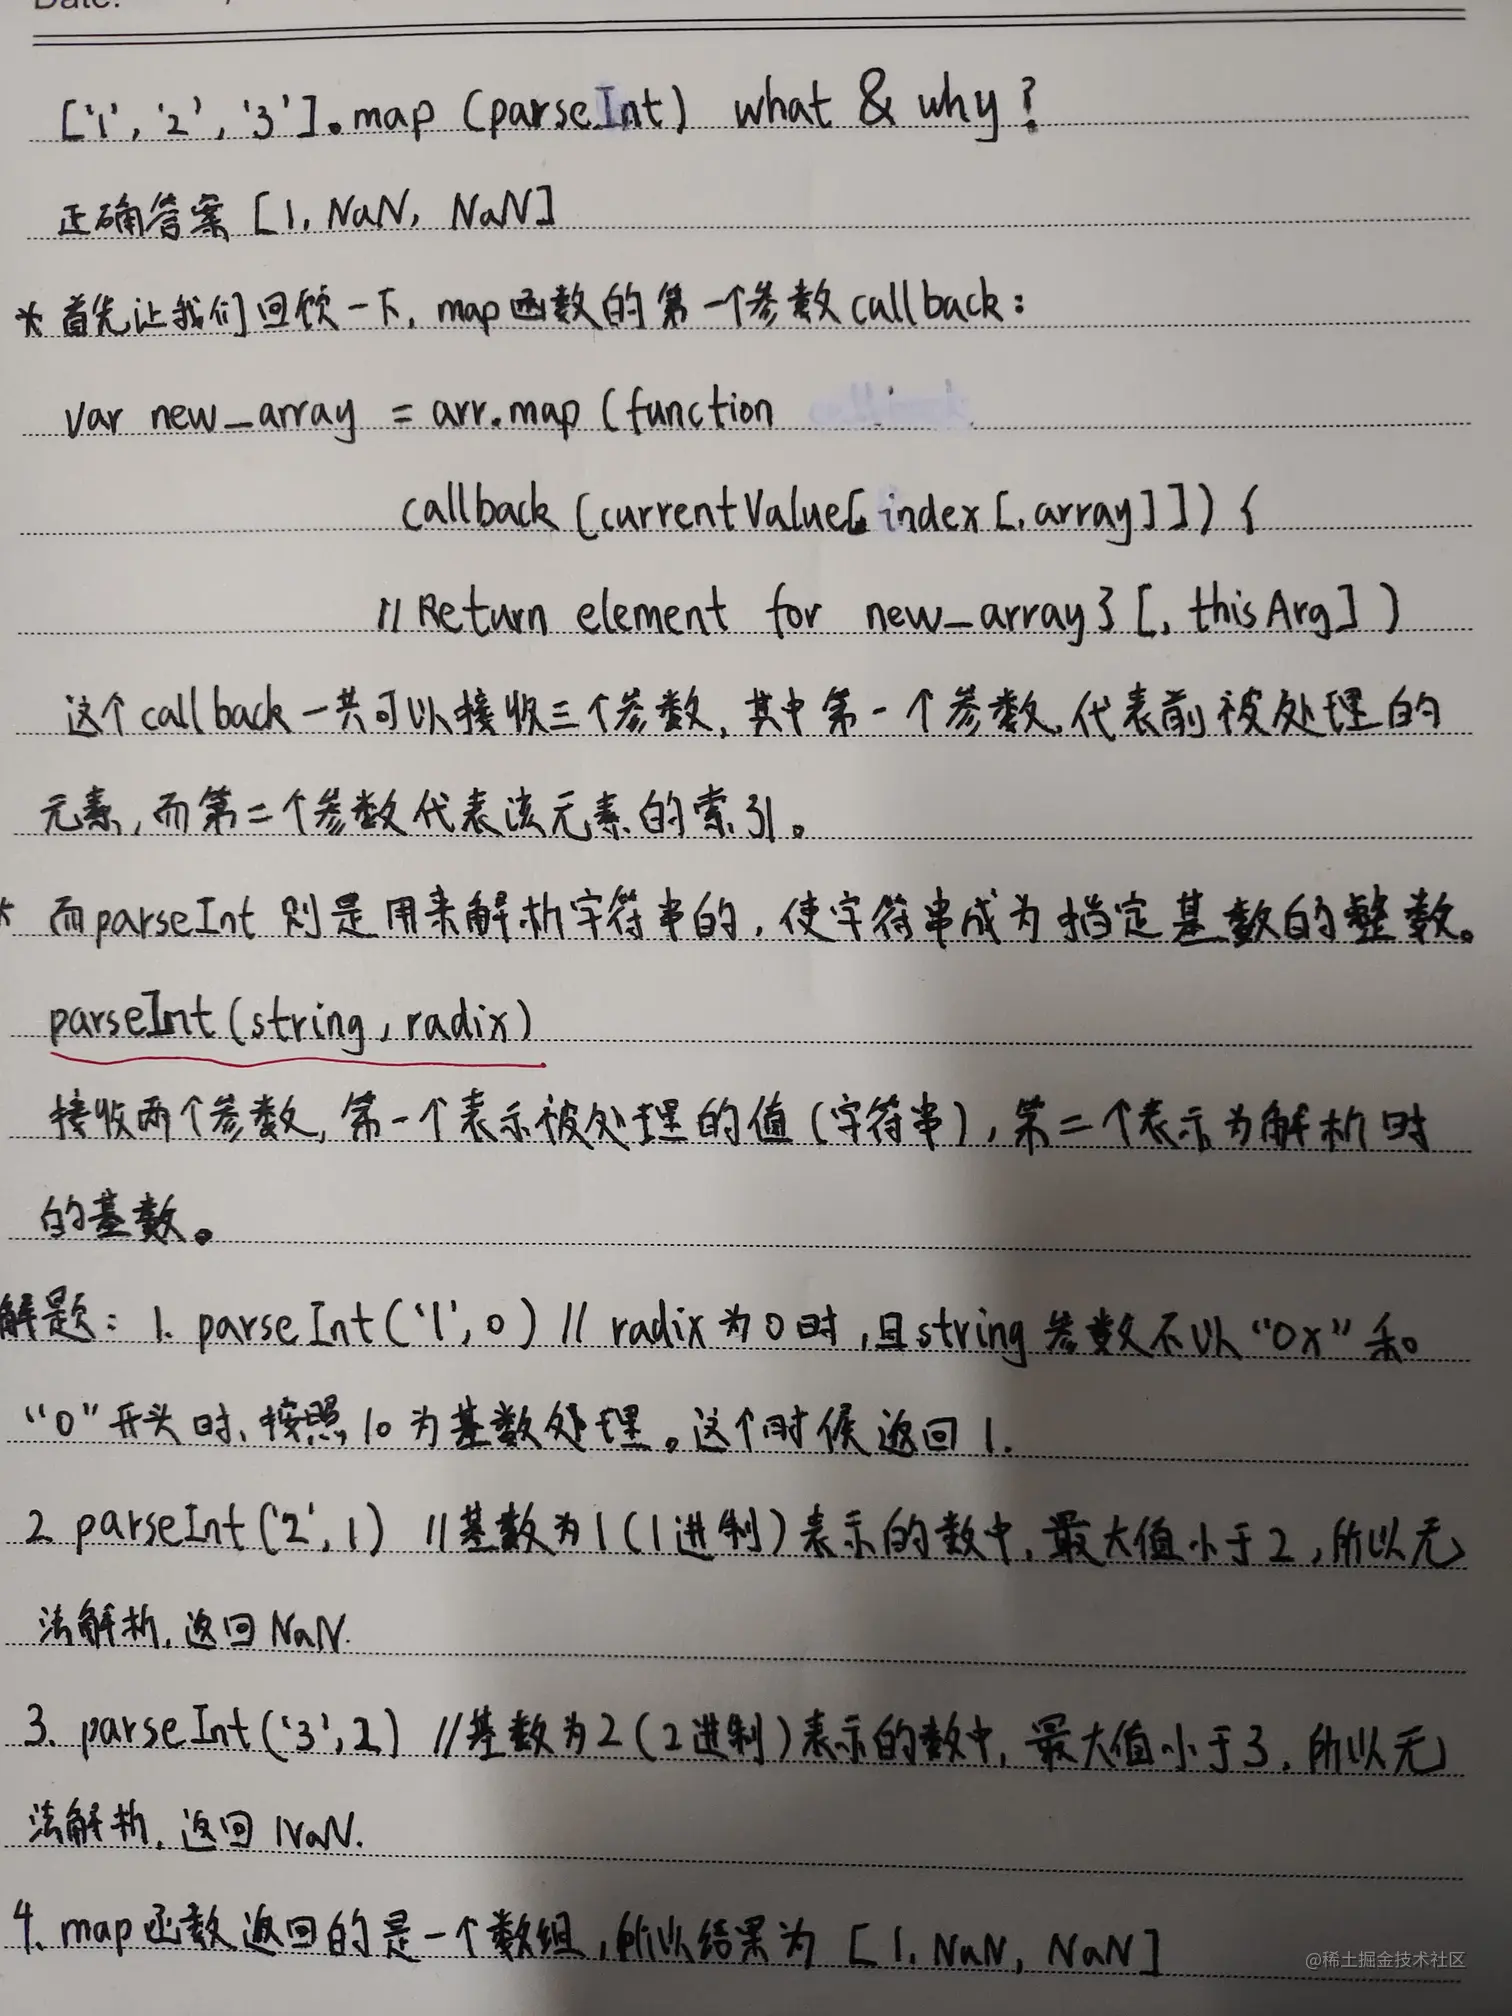 Date:
['1', '2', '3'].map (parseInt) what & why?
正确答案 [1, NaN, NaN]
* 首先让我们回顾一下, map函数的第一个参数callback:
var new_array = arr.map (function
callback (currentValue[, index[,array]]) {
// Return element for new_array } [, thisArg] )
这个callback一共可以接收三个参数, 其中第一个参数,代表前被处理的
元素, 而第二个参数代表该元素的索引。
* 而parseInt 则是用来解析字符串的, 使字符串成为指定基数的整数。
parseInt (string, radix)
接收两个参数, 第一个表示被处理的值 (字符串), 第二个表示为解析时
的基数。
解题: 1. parseInt('1', 0) // radix为0时, 且string参数不以“0x”和
“0”开头时, 按照10为基数处理。这个时候返回1.
2. parseInt('2', 1) //基数为1 (1进制) 表示的数中, 最大值小于2, 所以无
法解析, 返回NaN.
3. parseInt('3', 2) //基数为2 (2进制) 表示的数中, 最大值小于3, 所以无
法解析, 返回NaN.
4. map函数返回的是一个数组, 所以结果为 [1, NaN, NaN]
@稀土掘金技术社区